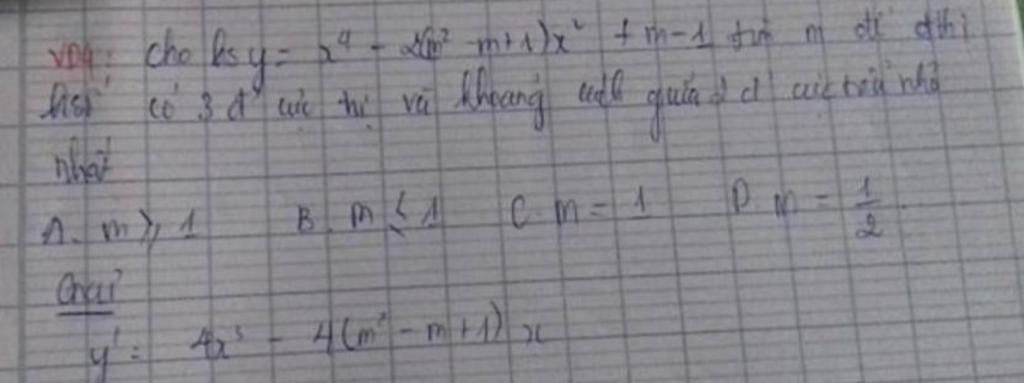 VD4: Cho hs y = x⁴ - 2(m² - m + 1)x² + m - 1 tìm m để đthị
hsố có 3 đ' cực trị và khoảng cách giữa 2 đ' cực tiểu nhỏ
nhất
A. m ⩾ 1 B. m ⩽ 1 C. m = 1 D. m = 1/2
Giải
y' = 4x³ - 4(m² - m + 1)x